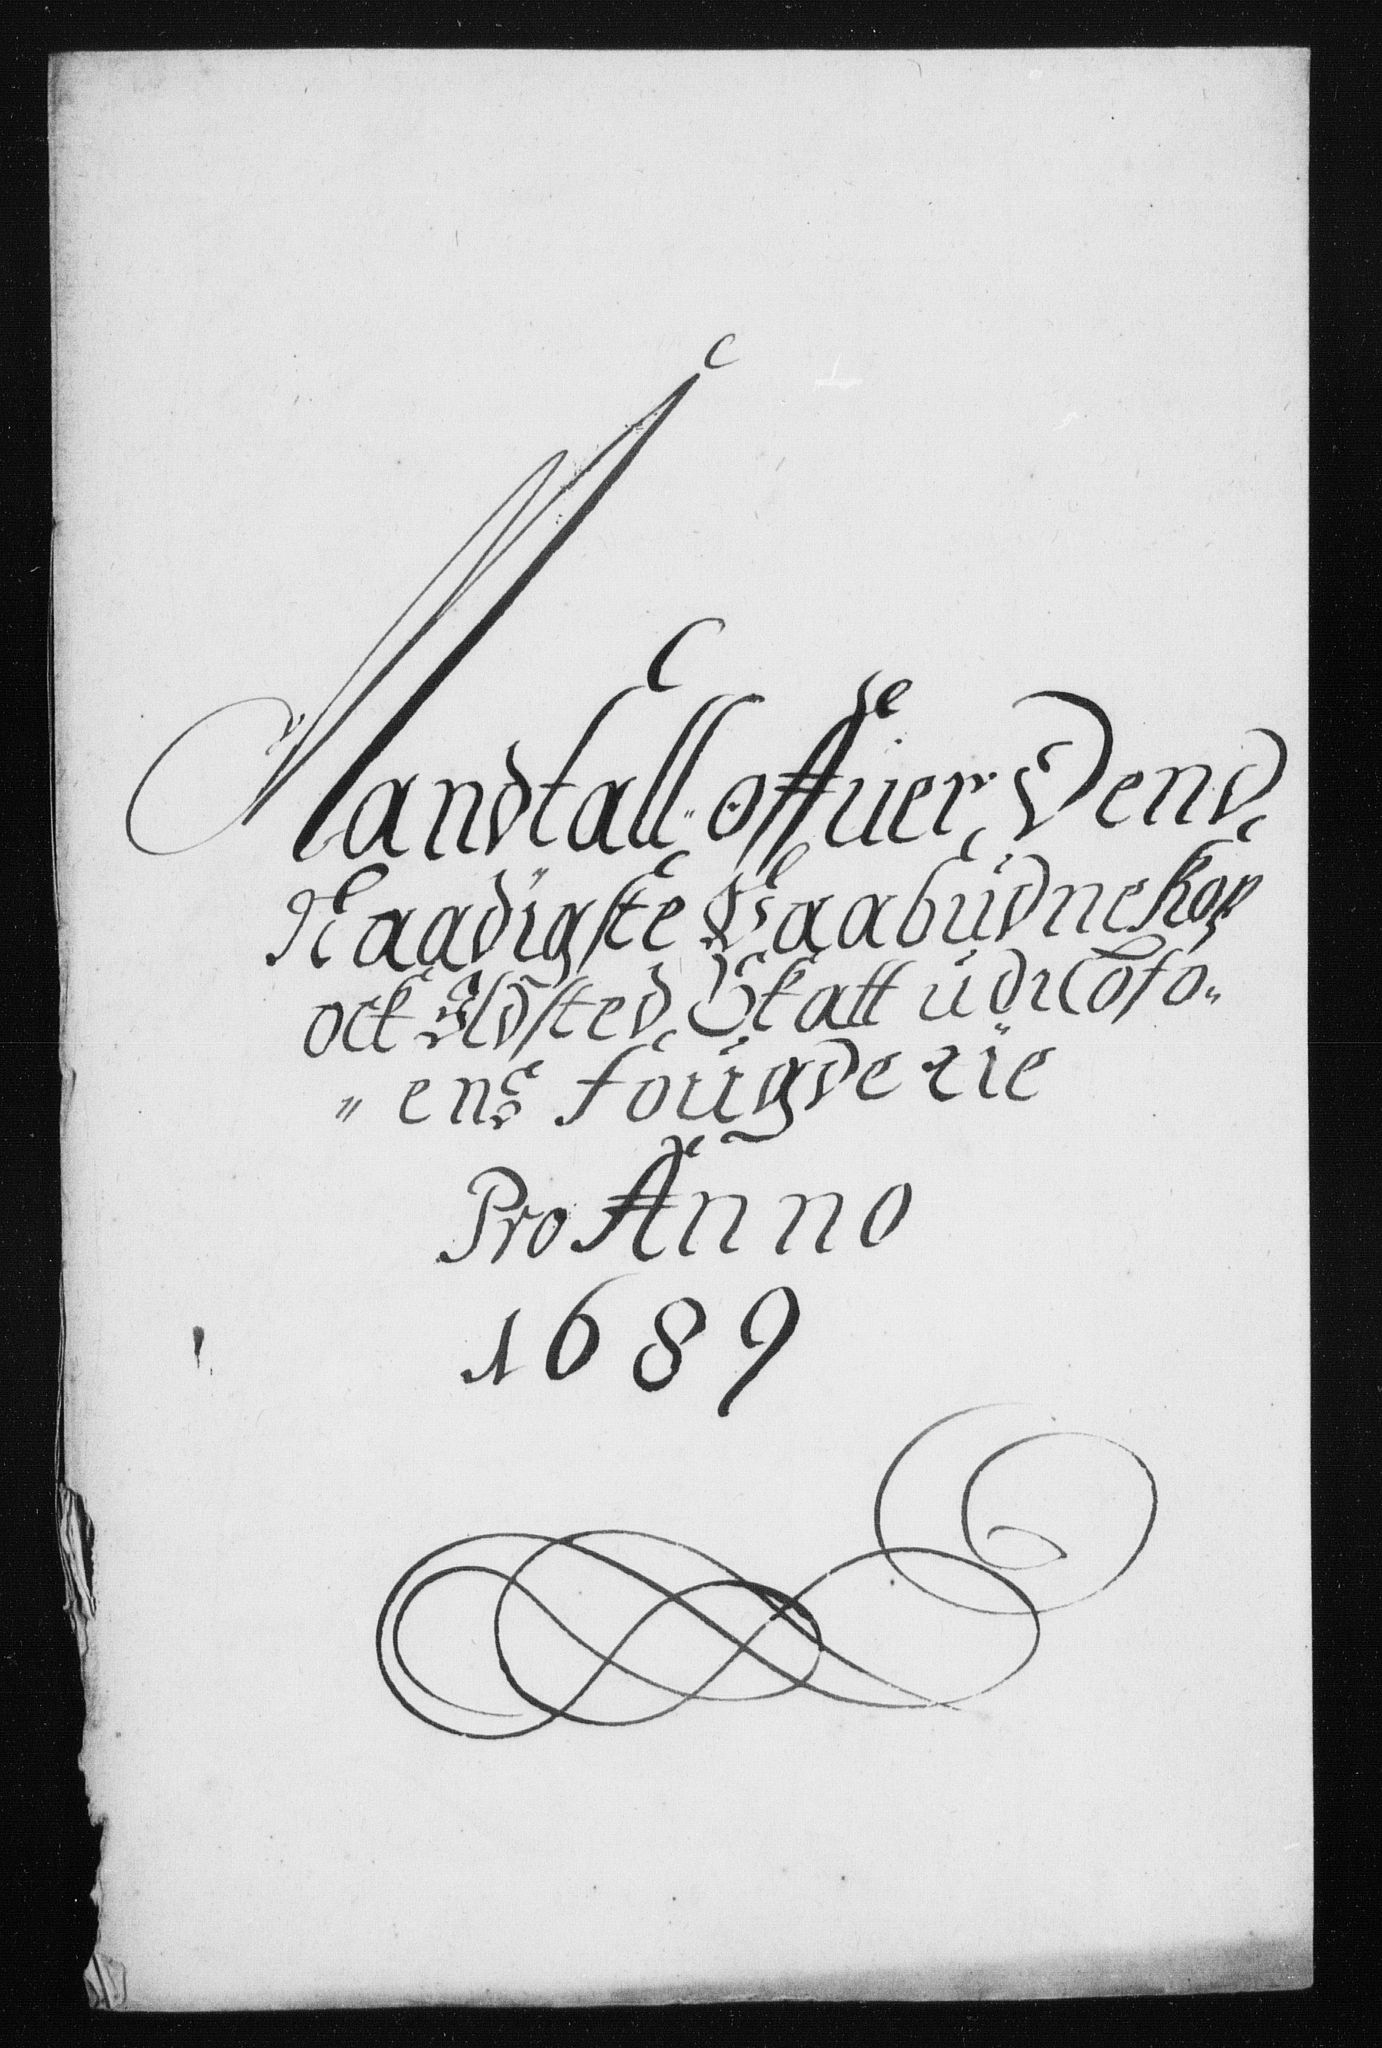 Mandtall offuer Dend
Naadigste Paabudne Kop
ock Ildsted Skatt udi Lofo„
„ens fougderie
Pro Anno
1689